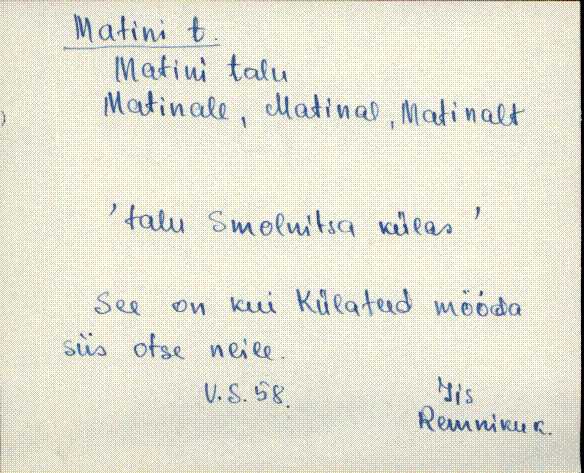 Matini t.
Matini talu
Matinale, Matinal, Matinalt
'talu Smolnitsa külas'
See on kui Külateed mööda
siis otse neile.
V.S. 58.
Iis
Remniku k.